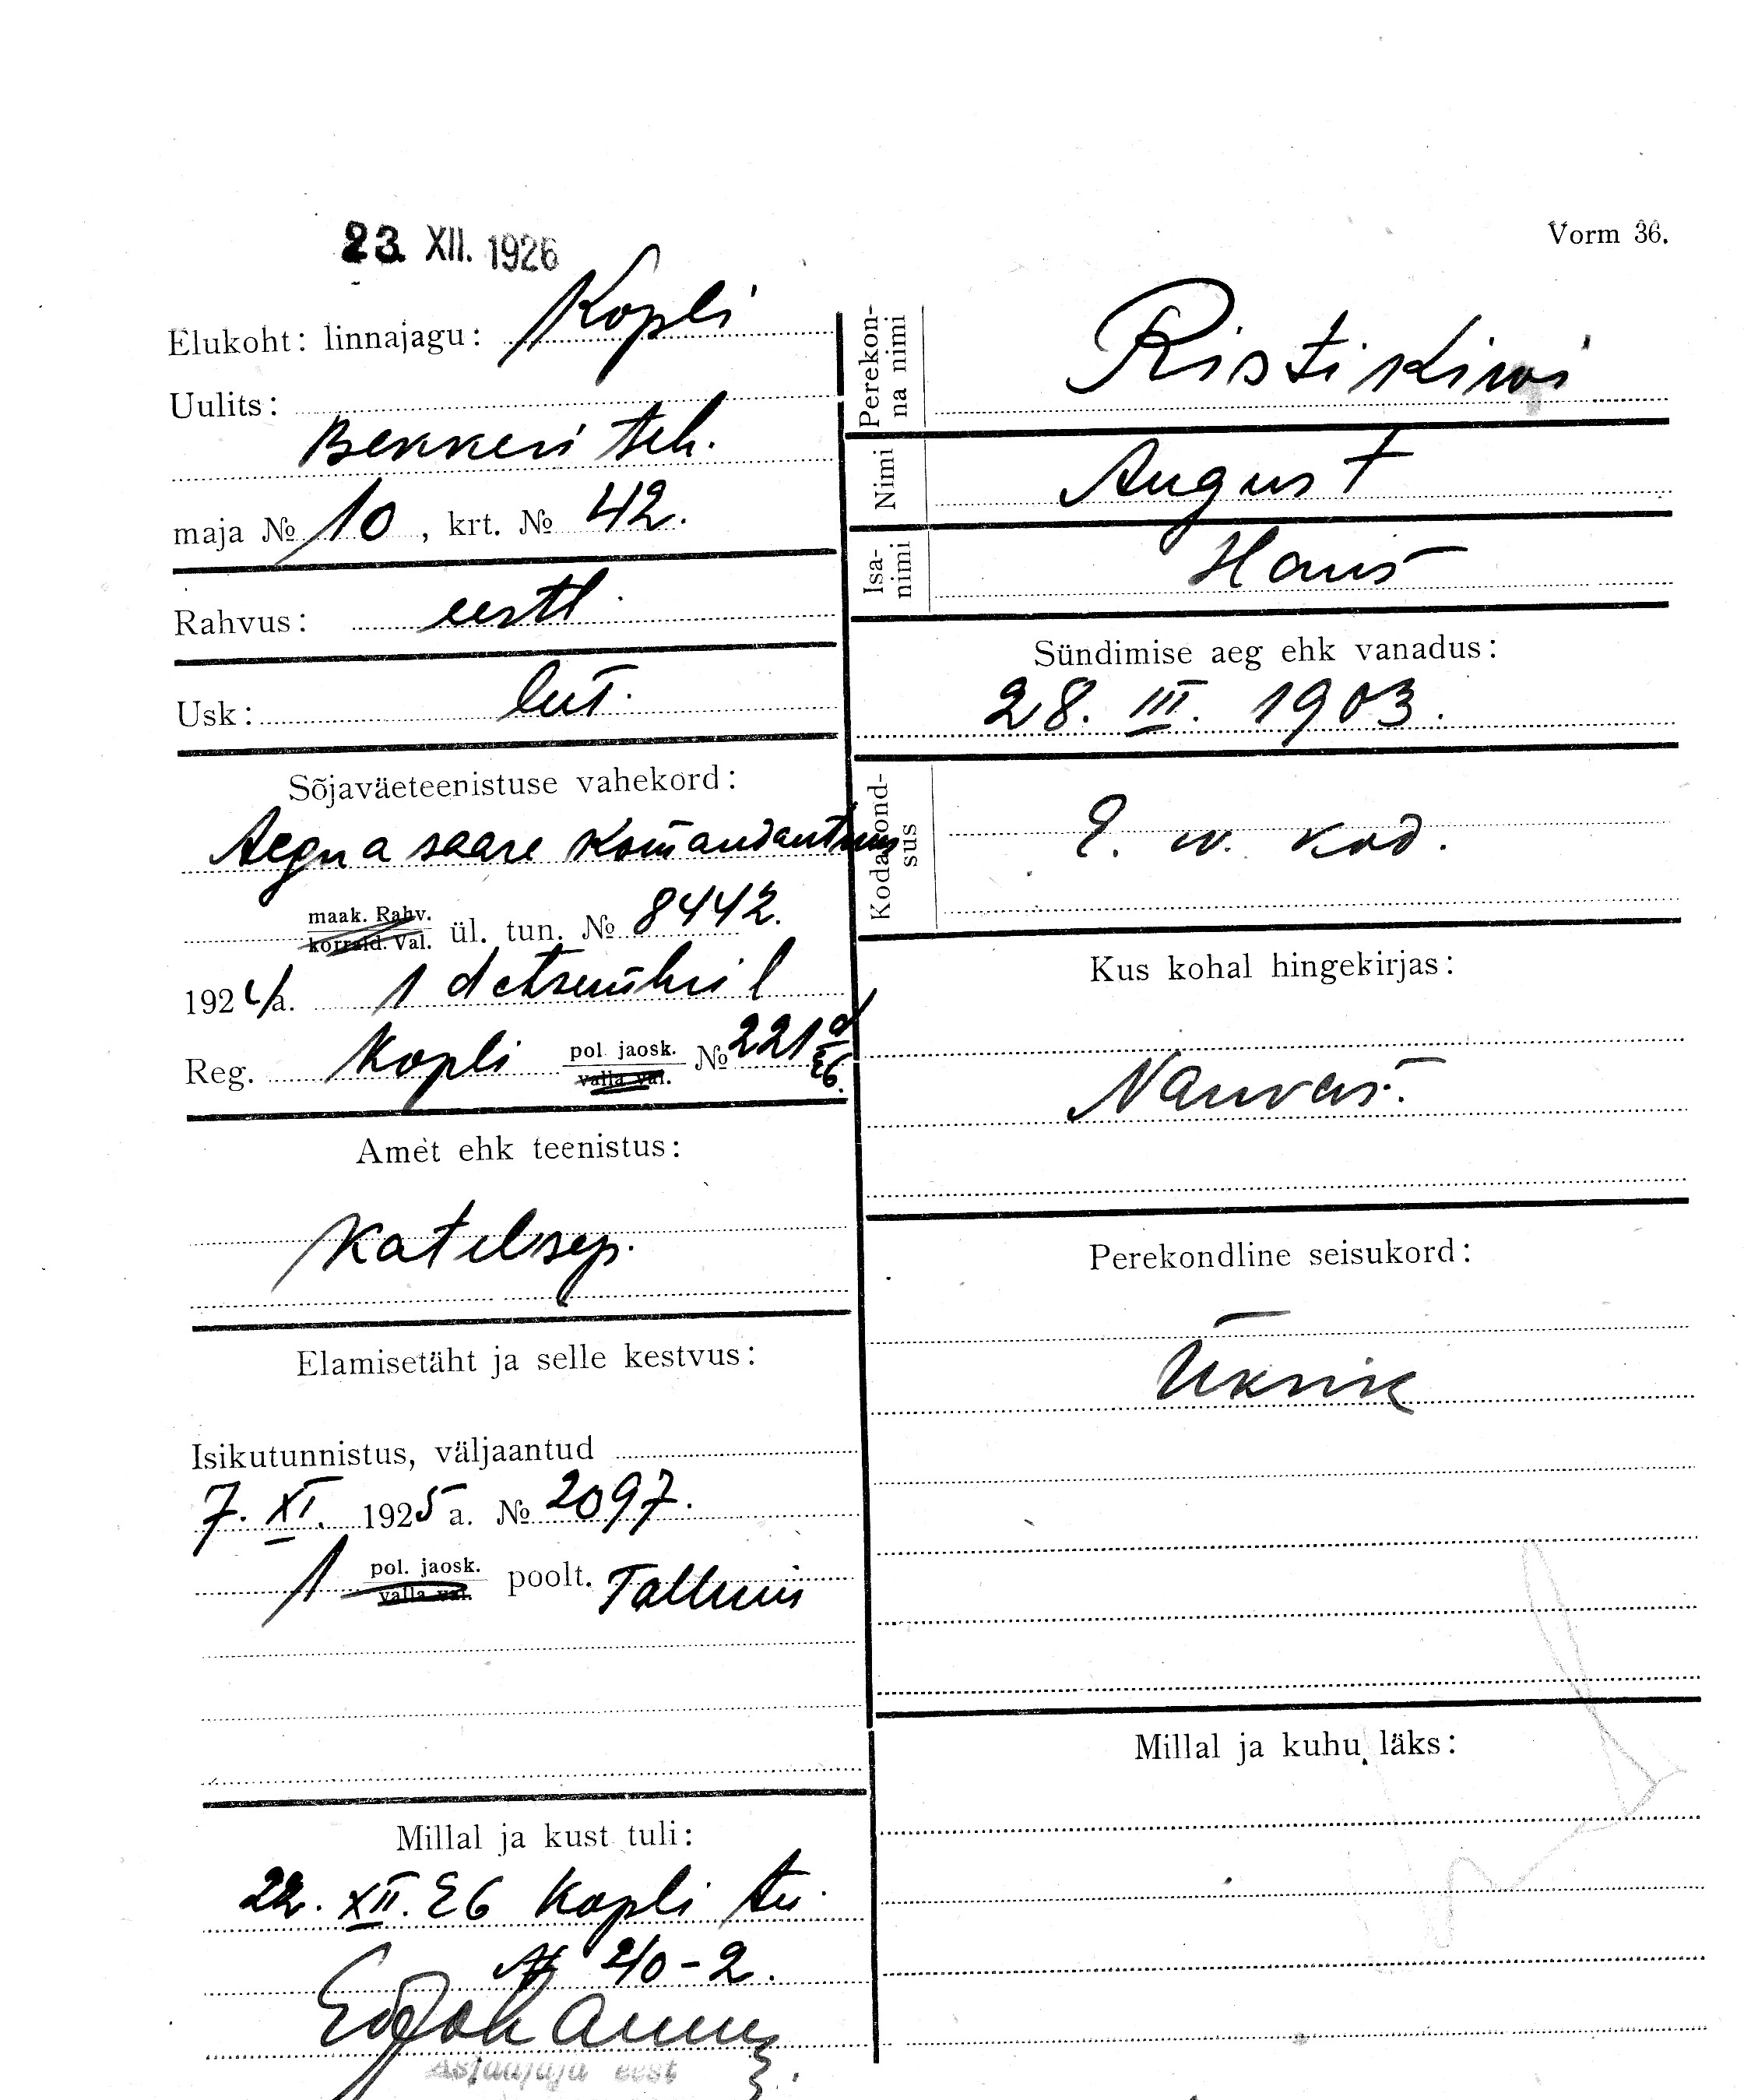 23. XII. 1926
Vorm 36.
Elukoht: linnajagu: Kopli
Uulits:
Bekkeri teh.
maja № 10, krt. № 42.
Rahvus: eestl.
Usk: lut.
Sõjaväeteenistuse vahekord:
Aegna saare
maak. Rahv.
korrald. Val. ül. tun. № 8442.
1924 a. 1 detsembril
Reg. Kopli pol. jaosk. № 221
valla val. 26.
Amet ehk teenistus:
Katelsep.
Elamisetäht ja selle kestvus:
Isikutunnistus, väljaantud
7. XI. 1925 a. № 2097.
1 pol. jaosk. poolt. Tallinnas
valla val.
Millal ja kust tuli:
22. XII. 26 Kopli tn.
№ 40-2.
Asjaajaja eest
Perekonna nimi
Ristikivi
Nimi
August
Isanimi
Hans
Sündimise aeg ehk vanadus:
28. III. 1903.
Kodakondsus
E. w. kod.
Kus kohal hingekirjas:
Narvas.
Perekondline seisukord:
Üksik
Millal ja kuhu läks: